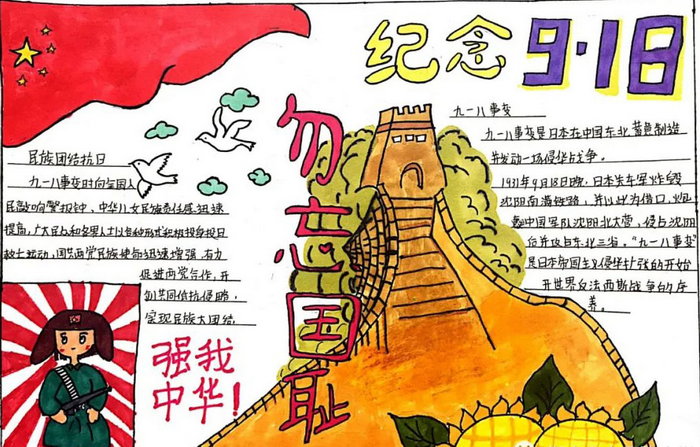 纪念9·18
勿忘国耻
民族团结抗日
九一八事变时向全国人
民敲响警报钟，中华儿女民族责任感迅速
提高，广大民众和各界人士以各种形式积极投身抗日
救亡运动，国共两党民族使命迅速增强，有力
促进两党合作，开
创共同体抗侵略，
实现民族大团结.
强我
中华！
九一八事变
九一八事变是日本在中国东北蓄意制造
并发动一场侵华战争。
1931年9月18日晚，日本关东军炸毁
沈阳南满铁路，并以此为借口，炮
轰中国军队沈阳北大营，侵占沈阳
并攻占东北三省。“九一八事变”
是日本帝国主义侵华扩张的开始
开世界反法西斯战争的序